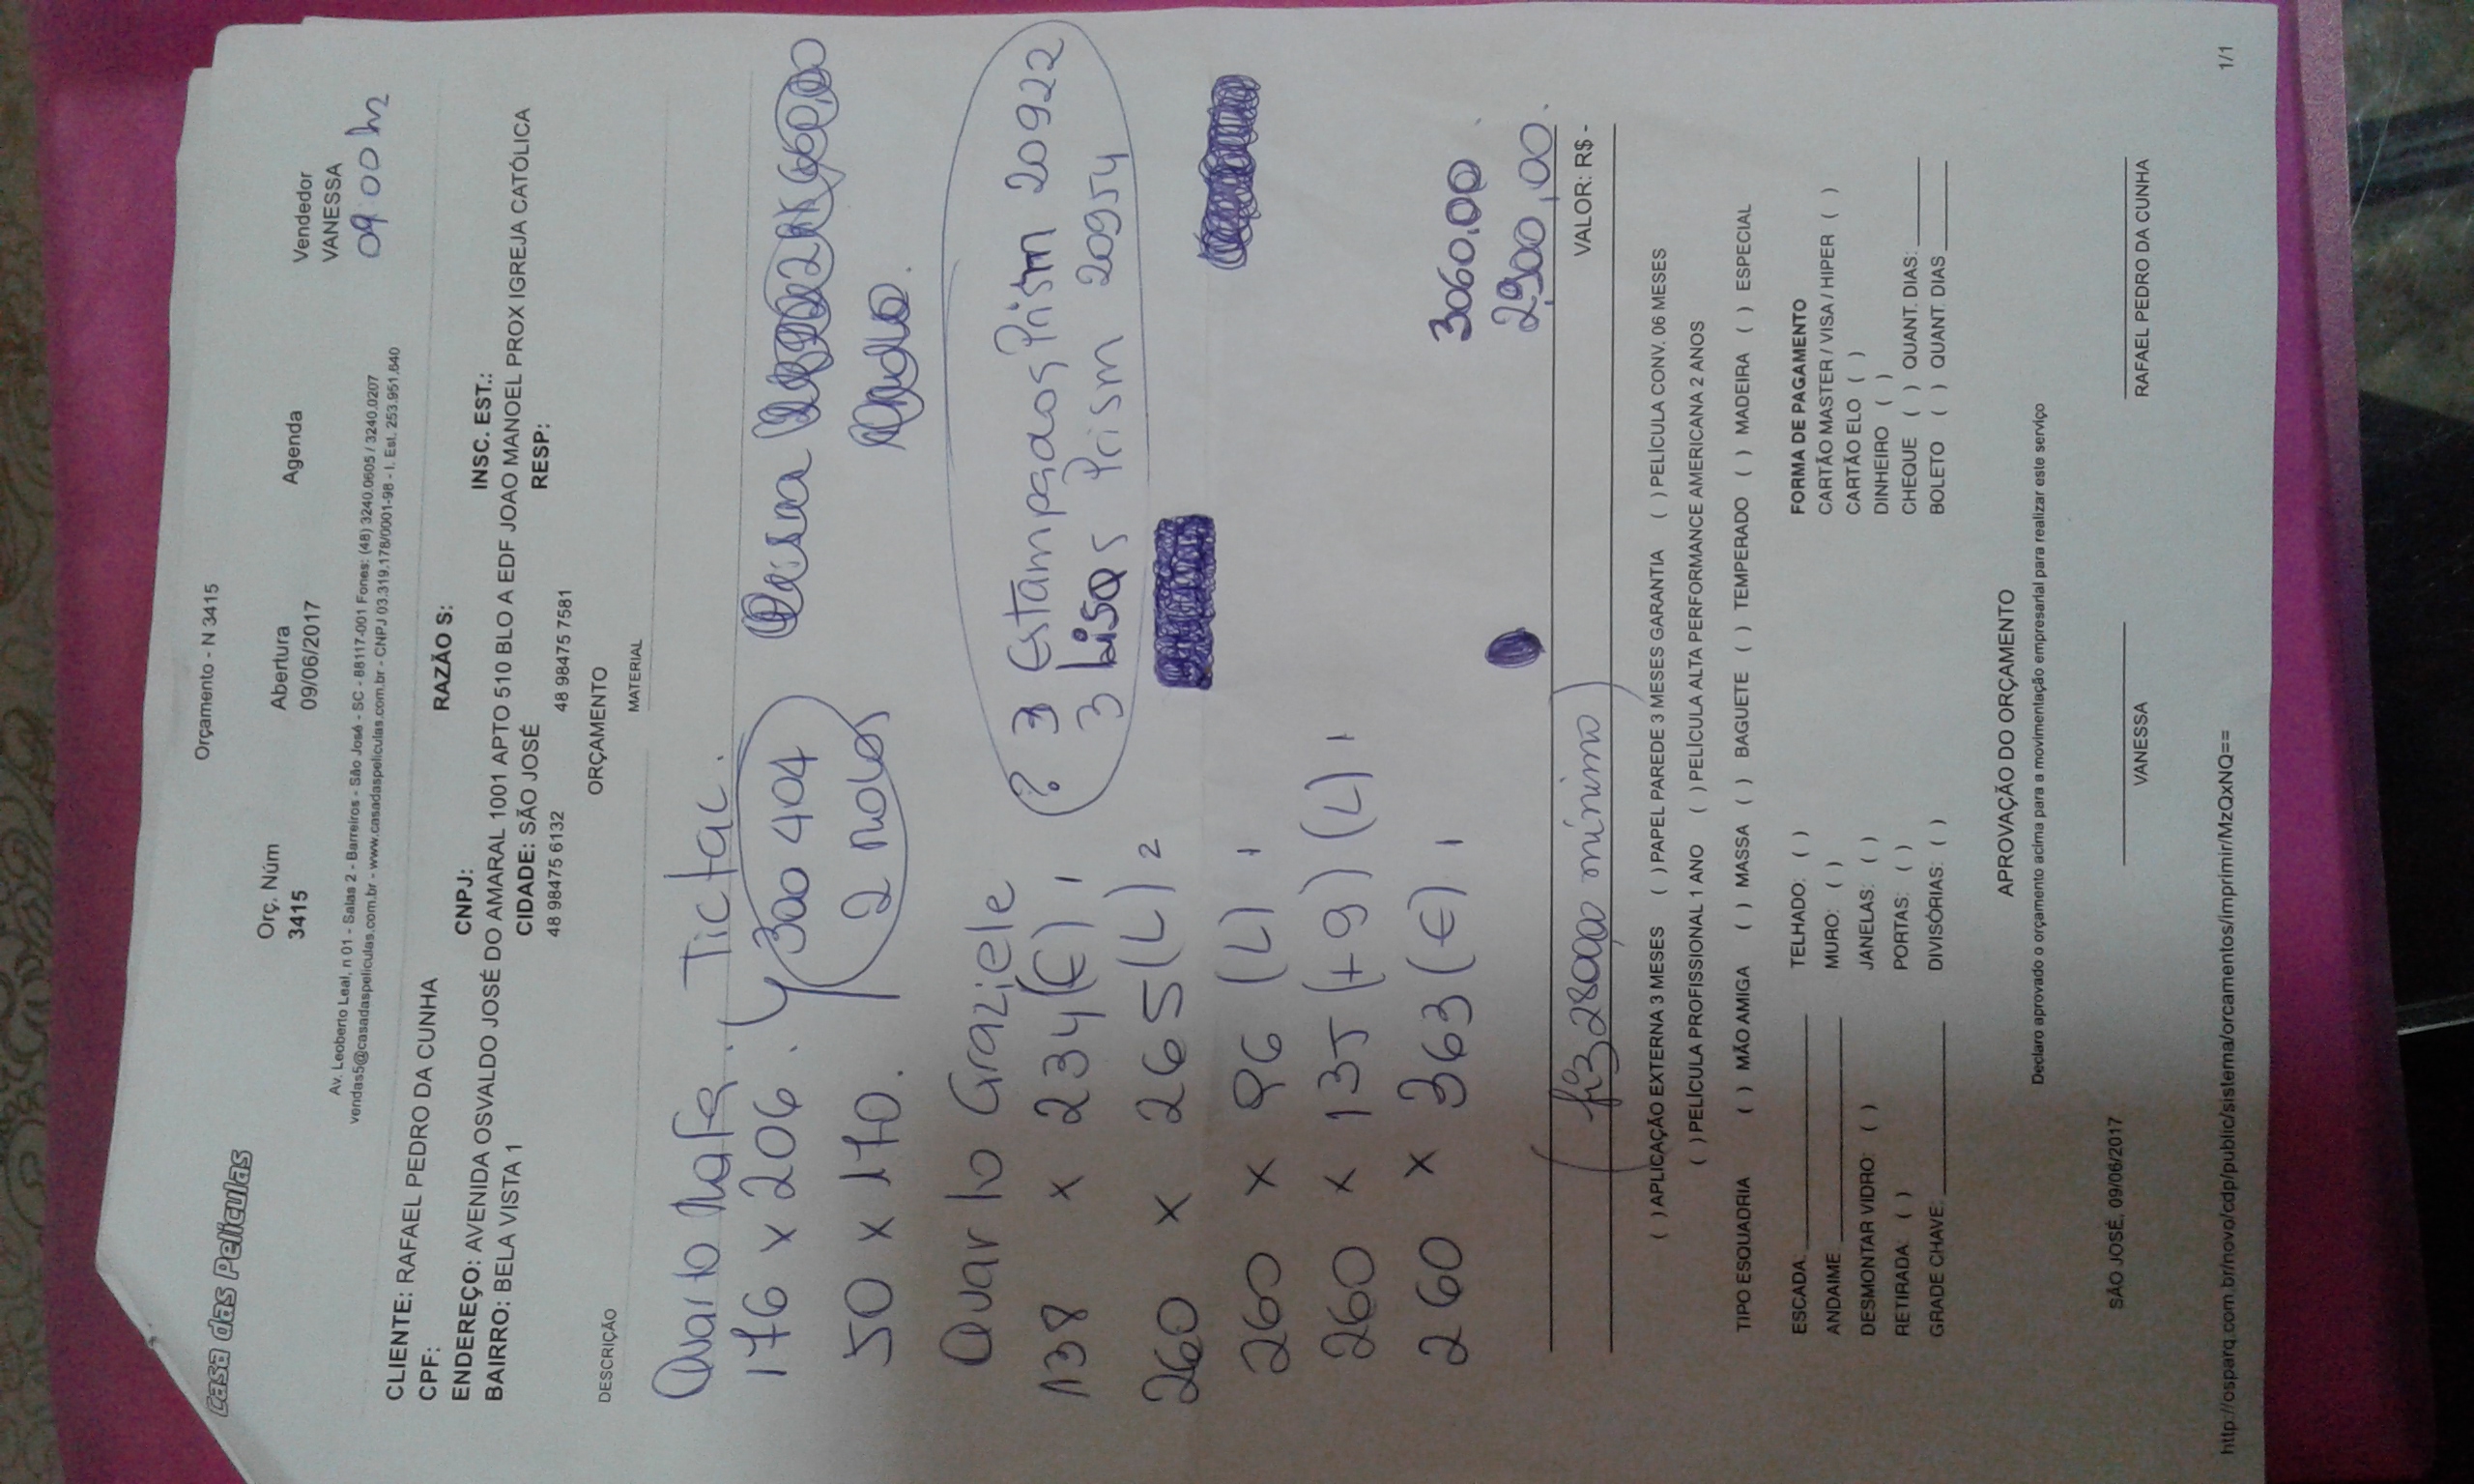 Casa das Películas
Orçamento - N 3415
Orç. Núm
3415
Abertura
09/06/2017
Agenda
Vendedor
VANESSA
09:00 hr
Av. Leoberto Leal, n 01 - Salas 2 - Barreiros - São José - SC - 88117-001 Fones: (48) 3240.0605 / 3240.0207
vendas5@casadaspeliculas.com.br - www.casadaspeliculas.com.br - CNPJ 03.319.178/0001-98 - I. Est. 253.951.640
CLIENTE: RAFAEL PEDRO DA CUNHA
RAZÃO S:
CPF:
CNPJ:
INSC. EST.:
ENDEREÇO: AVENIDA OSVALDO JOSÉ DO AMARAL 1001 APTO 510 BLO A EDF JOAO MANOEL PROX IGREJA CATÓLICA
BAIRRO: BELA VISTA 1
CIDADE: SÃO JOSÉ
RESP:
48 98475 6132
48 98475 7581
ORÇAMENTO
DESCRIÇÃO
MATERIAL
Quarto Rafa: Tictac.
176 x 206 . 300 404
50 x 170. 2 rolos
Quarto Graziele
138 x 234 (E) 1
? 3 Estampados Prism 20922
3 Lisos Prism 20954
260 x 265 (L) 2
260 x 96 (L) 1
260 x 135 (+9) (L) 1
260 x 363 (E) 1
3060,00
2.900,00
(fiz 2800,00 mínimo)
VALOR: R$ -
( ) APLICAÇÃO EXTERNA 3 MESES ( ) PAPEL PAREDE 3 MESES GARANTIA ( ) PELÍCULA CONV. 06 MESES
( ) PELÍCULA PROFISSIONAL 1 ANO ( ) PELÍCULA ALTA PERFORMANCE AMERICANA 2 ANOS
TIPO ESQUADRIA ( ) MÃO AMIGA ( ) MASSA ( ) BAGUETE ( ) TEMPERADO ( ) MADEIRA ( ) ESPECIAL
ESCADA:
TELHADO: ( )
FORMA DE PAGAMENTO
ANDAIME
MURO: ( )
CARTÃO MASTER / VISA / HIPER ( )
DESMONTAR VIDRO: ( )
JANELAS: ( )
CARTÃO ELO ( )
RETIRADA: ( )
PORTAS: ( )
DINHEIRO ( )
GRADE CHAVE:
DIVISÓRIAS: ( )
CHEQUE ( ) QUANT. DIAS:
BOLETO ( ) QUANT. DIAS
APROVAÇÃO DO ORÇAMENTO
Declaro aprovado o orçamento acima para a movimentação empresarial para realizar este serviço
SÃO JOSÉ, 09/06/2017
VANESSA
RAFAEL PEDRO DA CUNHA
http://osparq.com.br/novo/cdp/public/sistema/orcamentos/imprimir/MzQxNQ==
1/1